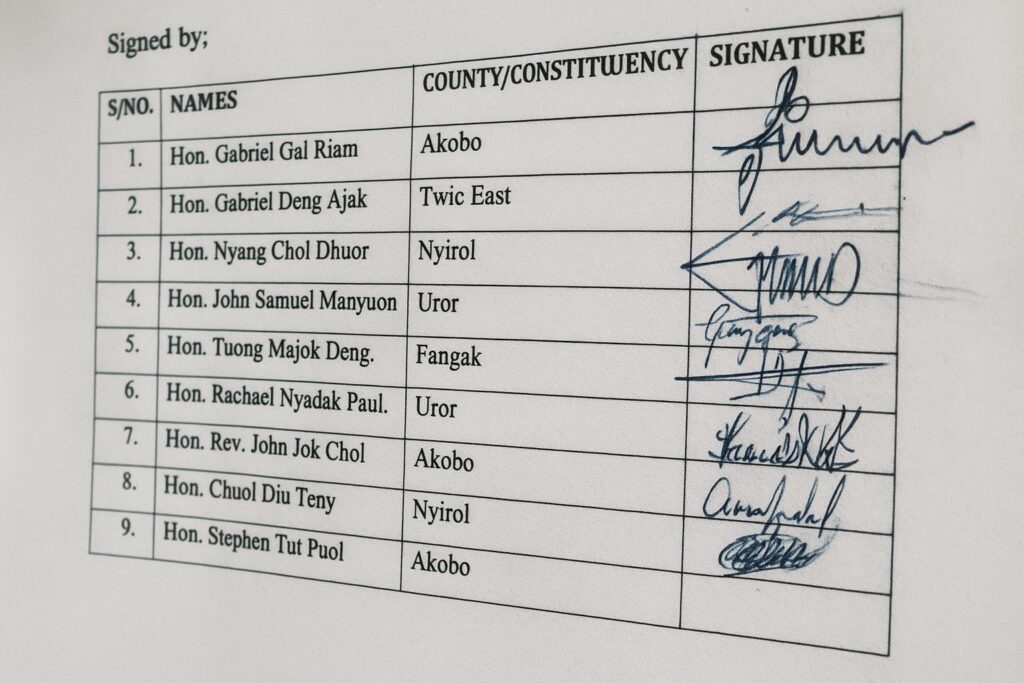 Signed by;
S/NO. NAMES COUNTY/CONSTITUENCY SIGNATURE
1. Hon. Gabriel Gal Riam Akobo
2. Hon. Gabriel Deng Ajak Twic East
3. Hon. Nyang Chol Dhuor Nyirol
4. Hon. John Samuel Manyuon Uror
5. Hon. Tuong Majok Deng. Fangak
6. Hon. Rachael Nyadak Paul. Uror
7. Hon. Rev. John Jok Chol Akobo
8. Hon. Chuol Diu Teny Nyirol
9. Hon. Stephen Tut Puol Akobo